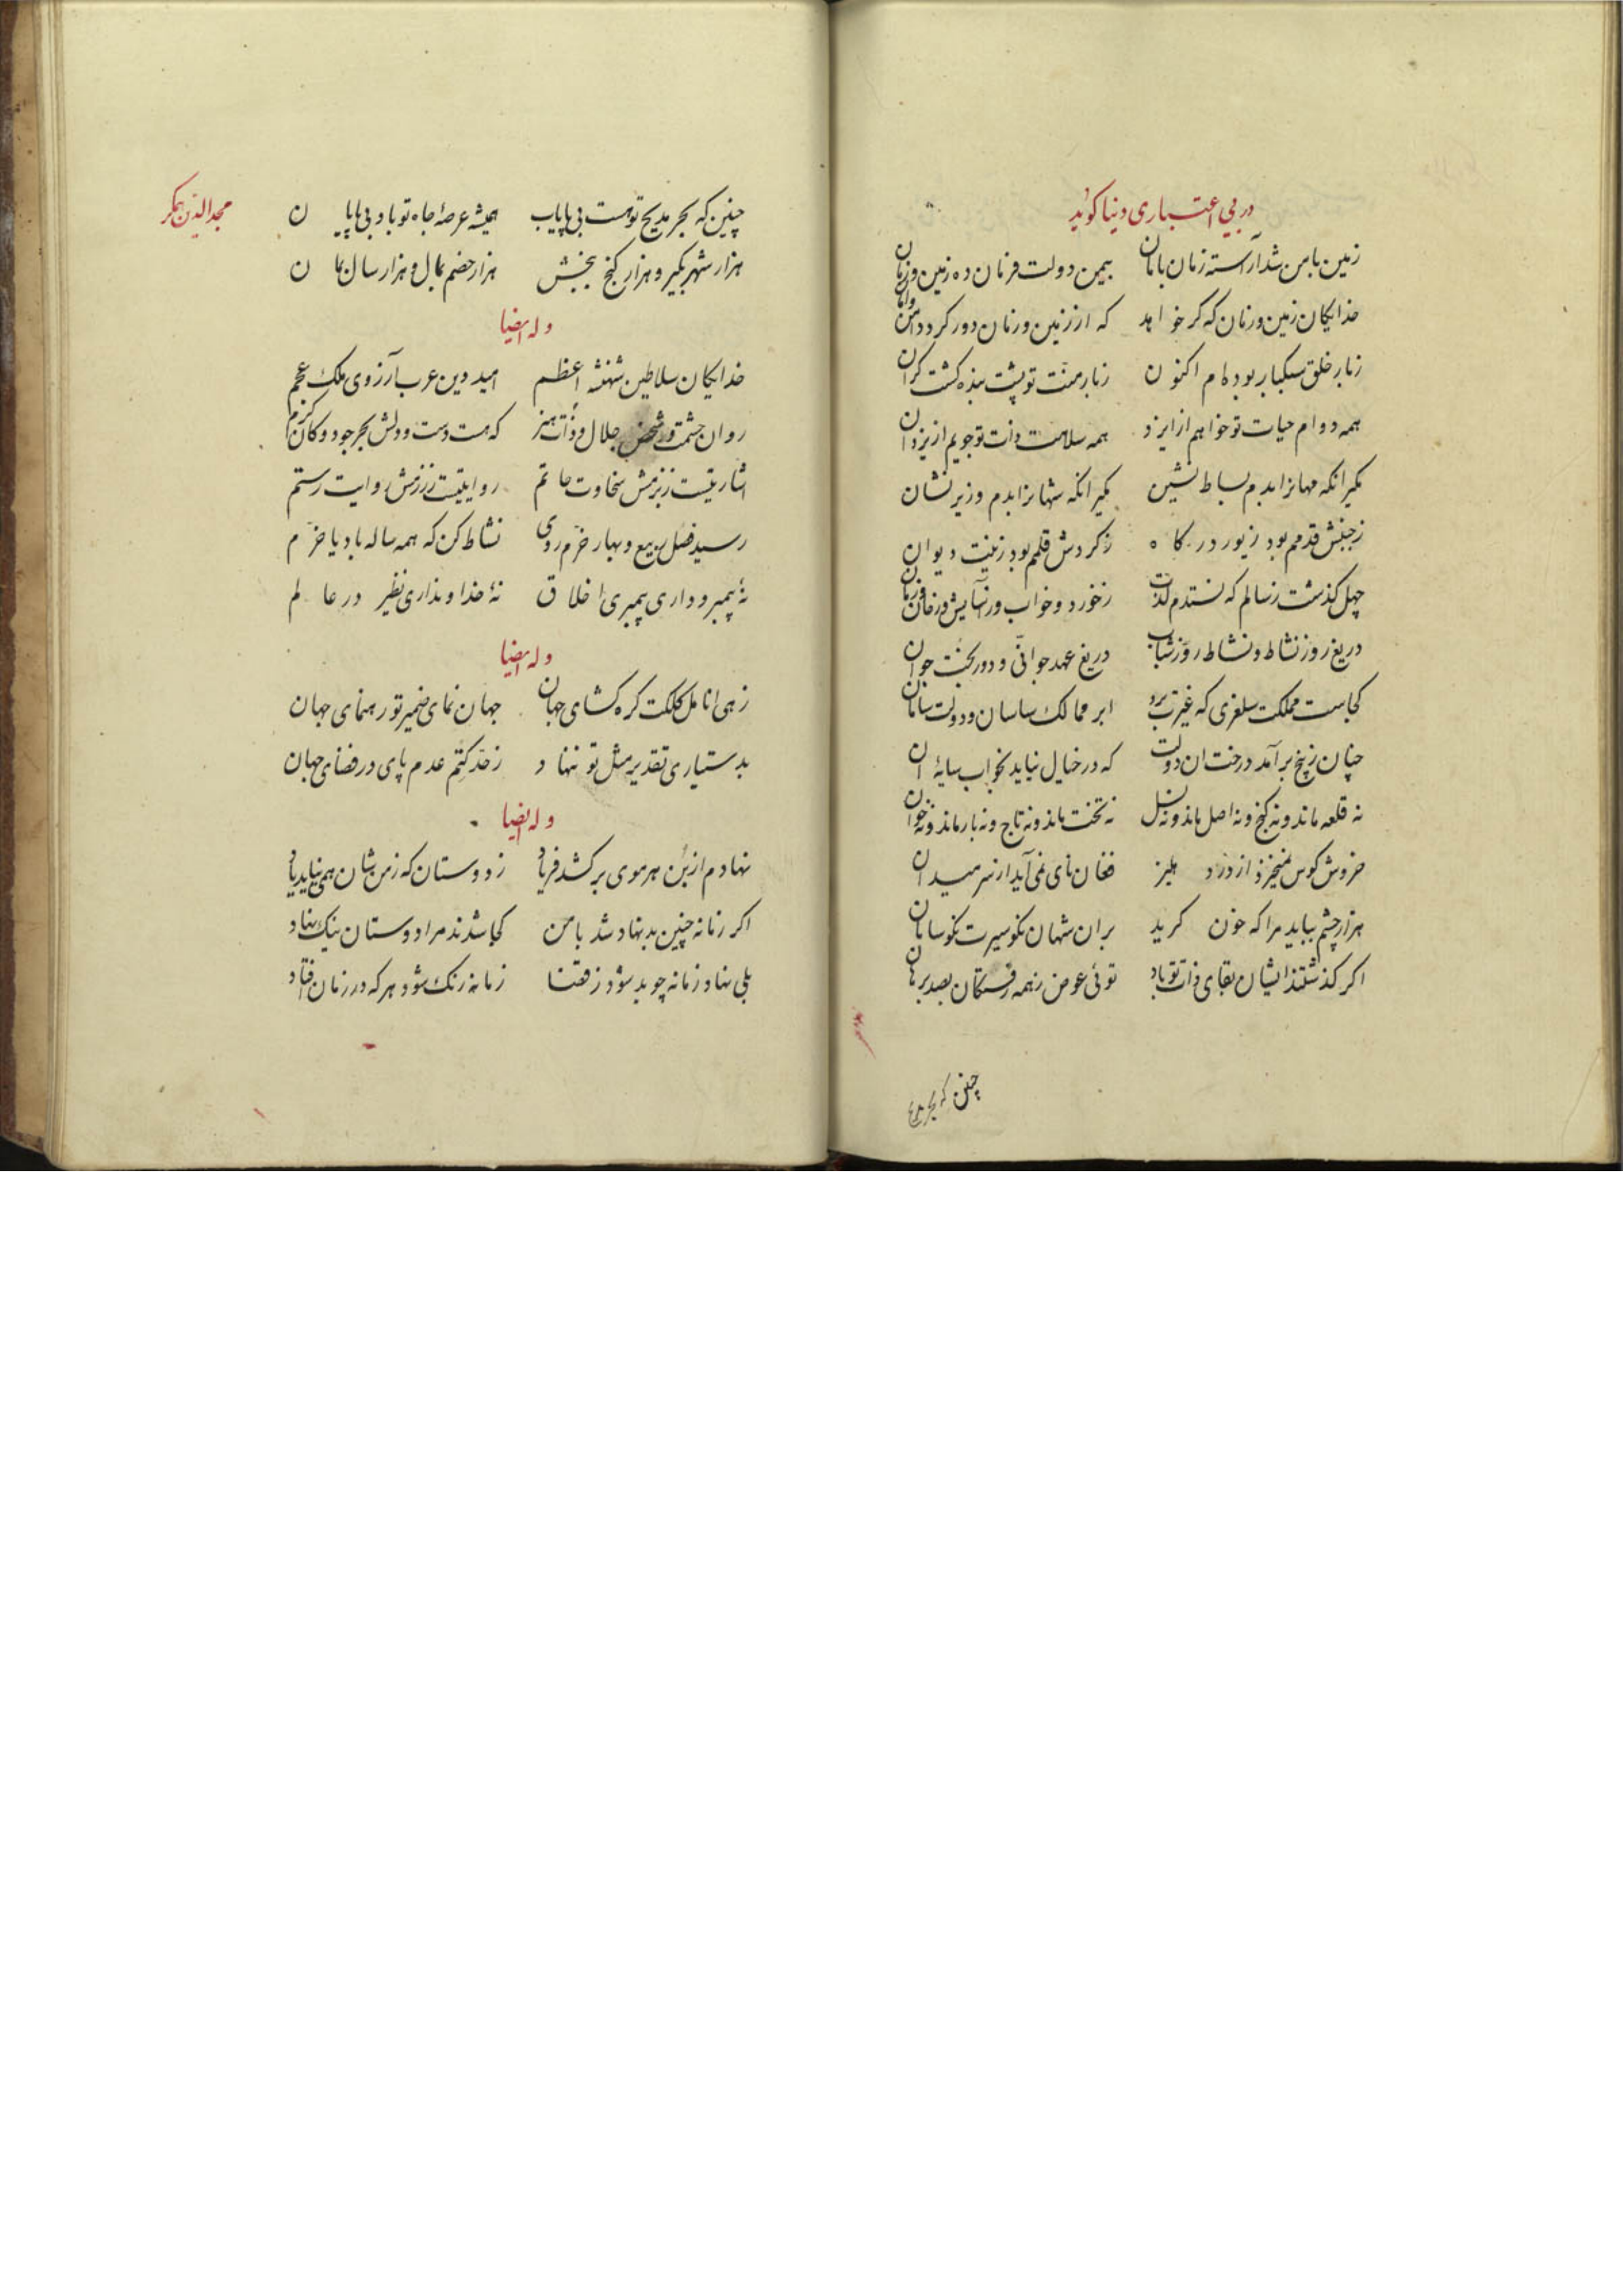 در بی اعتباری دنیا کوید
زمین بامن شد آراسته زمان بامان بیمن دولت فرمان ده زمین و زمان
خدایکان زمین و زمان که کر خواهد که از زمین و زمان دور کردد امن وامان
زبار خلق سبکبار بوده ام اکنون زبار منت تو پشت بنده کشت کران
همه دوام حیات تو خواهم از ایزد همه سلامت ذات تو جویم از یزدان
مکیر انکه مهانرا بدم بساط نشین مکیر انکه شهانرا بدم وزیر نشان
زجنبش قدمم بود زیور درکاه زکردش قلمم بود زینت دیوان
چهل کذشت زسالم که نستدم لذت زخورد و خواب و زآسایش و زخان و زمان
دریغ روز نشاط و نشاط روز شباب دریغ عهد جوانی و دور بخت جوان
کجاست مملکت سلغری که غیرت برد ابر ممالک ساسان و دولت سامان
چنان زبیخ برآمد درخت ان دولت که در خیال نیاید بخواب سایۀ ان
نه قلعه ماند و نه کنج و نه اصل ماند و نه نسل نه تخت ماند و نه تاج و نه بار ماند و نه خوان
خروش کوس نمیخیزد از در دهلیز فغان نای نمی آید از سر میدان
هزار چشم بباید مرا که خون کرید بران شهان نکو سیرت نکو سامان
اکر کذشتند ایشان بقای ذات تو باد توئی عوض زهمه رفتکان بصد برهان
چنین که بحر مدیح
مجدالدین همکر
چنین که بحر مدیح تو هست بی پایاب همیشه عرصۀ جاه تو باد بی پایان
هزار شهر بکیر و هزار کنج ببخش هزار خصم بمال و هزار سال بمان
وله ایضا
خدایکان سلاطین شهنشه اعظم امید دین عرب آرزوی ملک عجم
روان حشمت و شخص جلال و ذات هنر که هست دست و دلش بحر جود و کان کرم
اشارتیست زبزمش سخاوت حاتم روایتیست زرزمش روایت رستم
رسید فصل ربیع و بهار خرم روی نشاط کن که همه ساله بادیا خرم
نۀ پیمبر و داری پیمبری اخلاق نۀ خدا و نداری نظیر در عالم
وله ایضا
زهی انامل کلکت کره کشای جهان جهان نمای ضمیر تو رهنمای جهان
بدستیاری تقدیر مثل تو ننهاد زحد کتم عدم پای در فضای جهان
وله ایضا
نهادم از بن هر موی برکشد فریاد زدوستان که زمن شان همی نیاید یاد
اکر زمانه چنین بدنهاد شد بامن کجا شدند مرا دوستان نیک نهاد
بلی نهاد زمانه چو بد شود زقضا زمانه رنک شود هر که در زمان افتاد